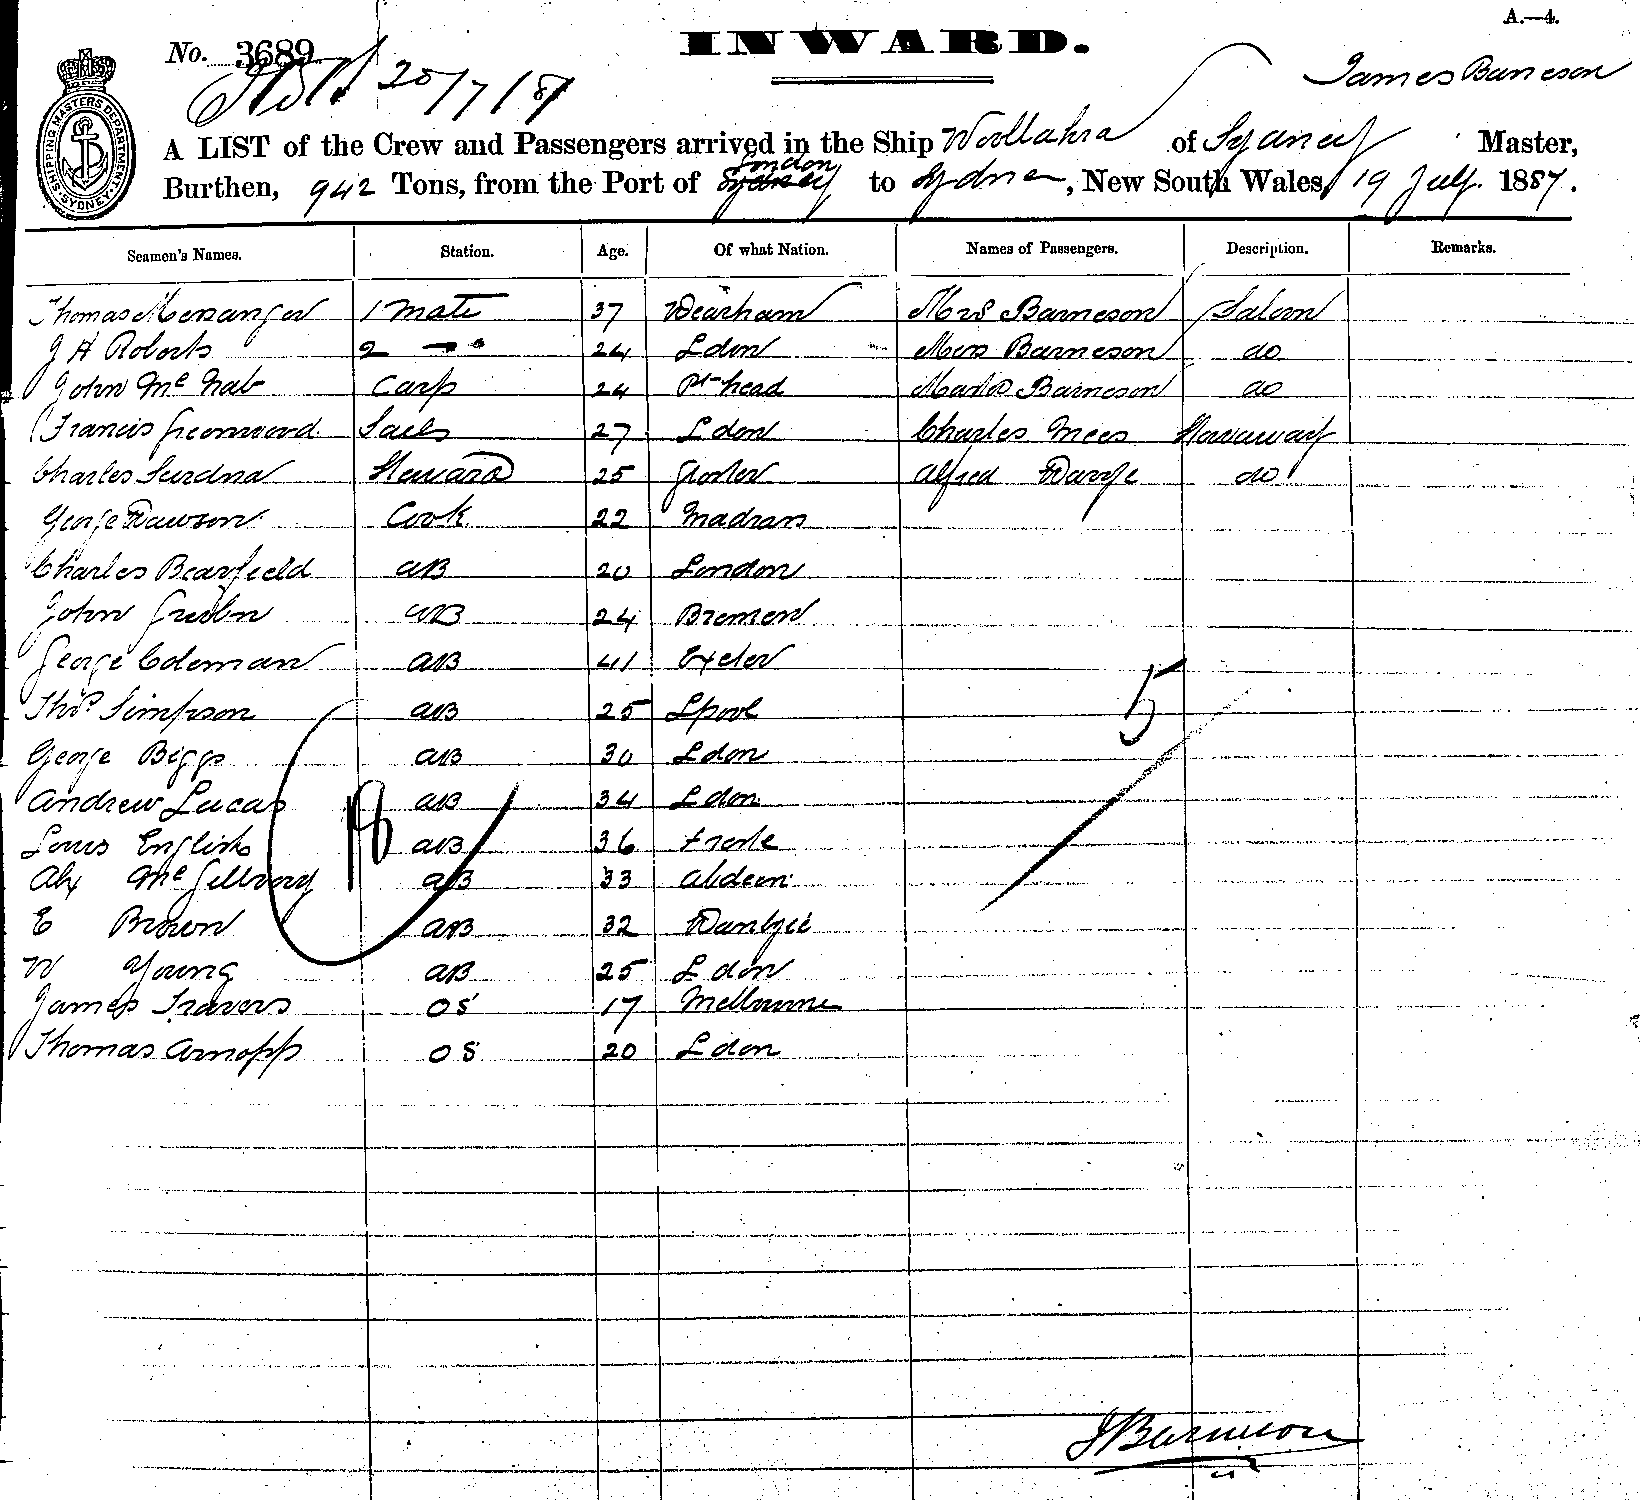 A.—4.
No. 3689
INWARD.
20/7/87
James Barneson
SHIPPING MASTERS DEPARTMENT SYDNEY
A LIST of the Crew and Passengers arrived in the Ship Woollahra of Sydney Master,
London
Burthen, 942 Tons, from the Port of Sydney to Sydney, New South Wales, 19 July 1887.
Seamen's Names. Station. Age. Of what Nation. Names of Passengers. Description. Remarks.
Thomas Messanger 1 Mate 37 Mrs Barneson Saloon
J H Roberts 2 24 Ldon Miss Barneson do
John Mc Nab Carp 24 Pt head Barneson do
Francis Greenwood Sails 27 Ldon Charles Mees Stowaway
Charles Steward 25 Gloster Alfred do
George Dawson Cook 22 Madras
Charles Bearfield AB 20 London
John AB 24 Bremen
George Coleman AB 41 Exeter
Thos Simpson AB 25 Lpool
George Biggs AB 30 Ldon
Andrew Lucas AB 34 Ldon
Louis English AB 36
Alex AB 33 Abdeen
E Brown AB 32
W Young AB 25 Ldon
James Travers OS 17 Melbourne
Thomas Arnopp OS 20 Ldon
18
5
J Barneson